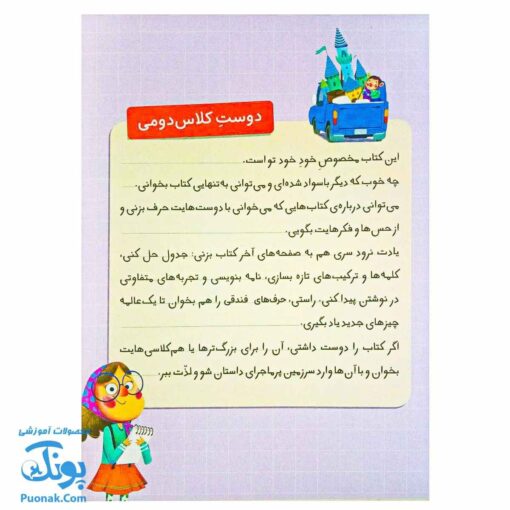 دوستِ کلاس‌دومی
این کتاب مخصوصِ خودِ خودِ تو است.
چه خوب که دیگر باسواد شده‌ای و می‌توانی به‌تنهایی کتاب بخوانی.
می‌توانی درباره‌ی کتاب‌هایی که می‌خوانی با دوست‌هایت حرف بزنی و
از حس‌ها و فکرهایت بگویی.
یادت نرود سری هم به صفحه‌های آخر کتاب بزنی: جدول حل کنی،
کلمه‌ها و ترکیب‌های تازه بسازی، نامه بنویسی و تجربه‌های متفاوتی
در نوشتن پیدا کنی. راستی، حرف‌های فندقی را هم بخوان تا یک‌عالمه
چیزهای جدید یاد بگیری.
اگر کتاب را دوست داشتی، آن را برای بزرگ‌ترها یا هم‌کلاسی‌هایت
بخوان و با آن‌ها وارد سرزمین پرماجرای داستان شو و لذّت ببر.
محصولات آموزشی
پونک
Puonak.Com